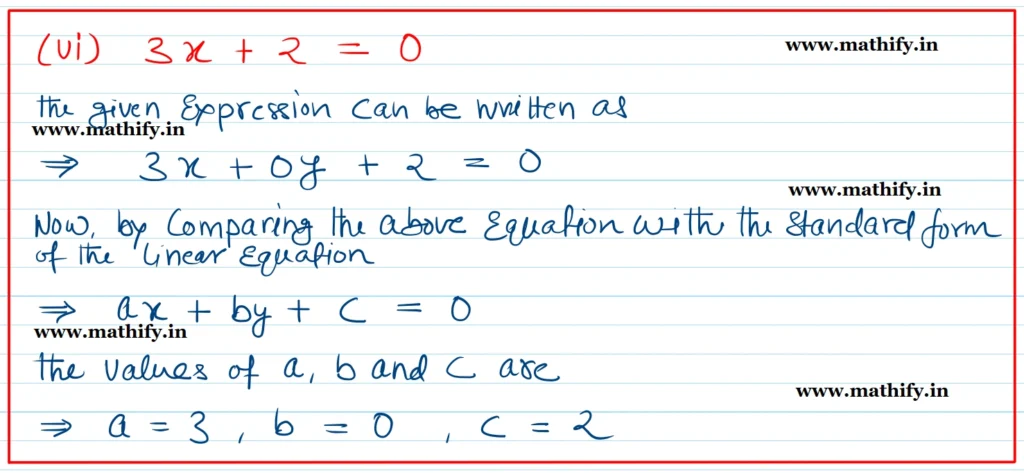 (vi) 3x + 2 = 0
www.mathify.in
the given Expression can be written as
www.mathify.in
⇒ 3x + 0y + 2 = 0
www.mathify.in
Now, by Comparing the above Equation with the standard form
of the linear Equation
⇒ ax + by + c = 0
www.mathify.in
the values of a, b and c are
www.mathify.in
⇒ a = 3 , b = 0 , c = 2